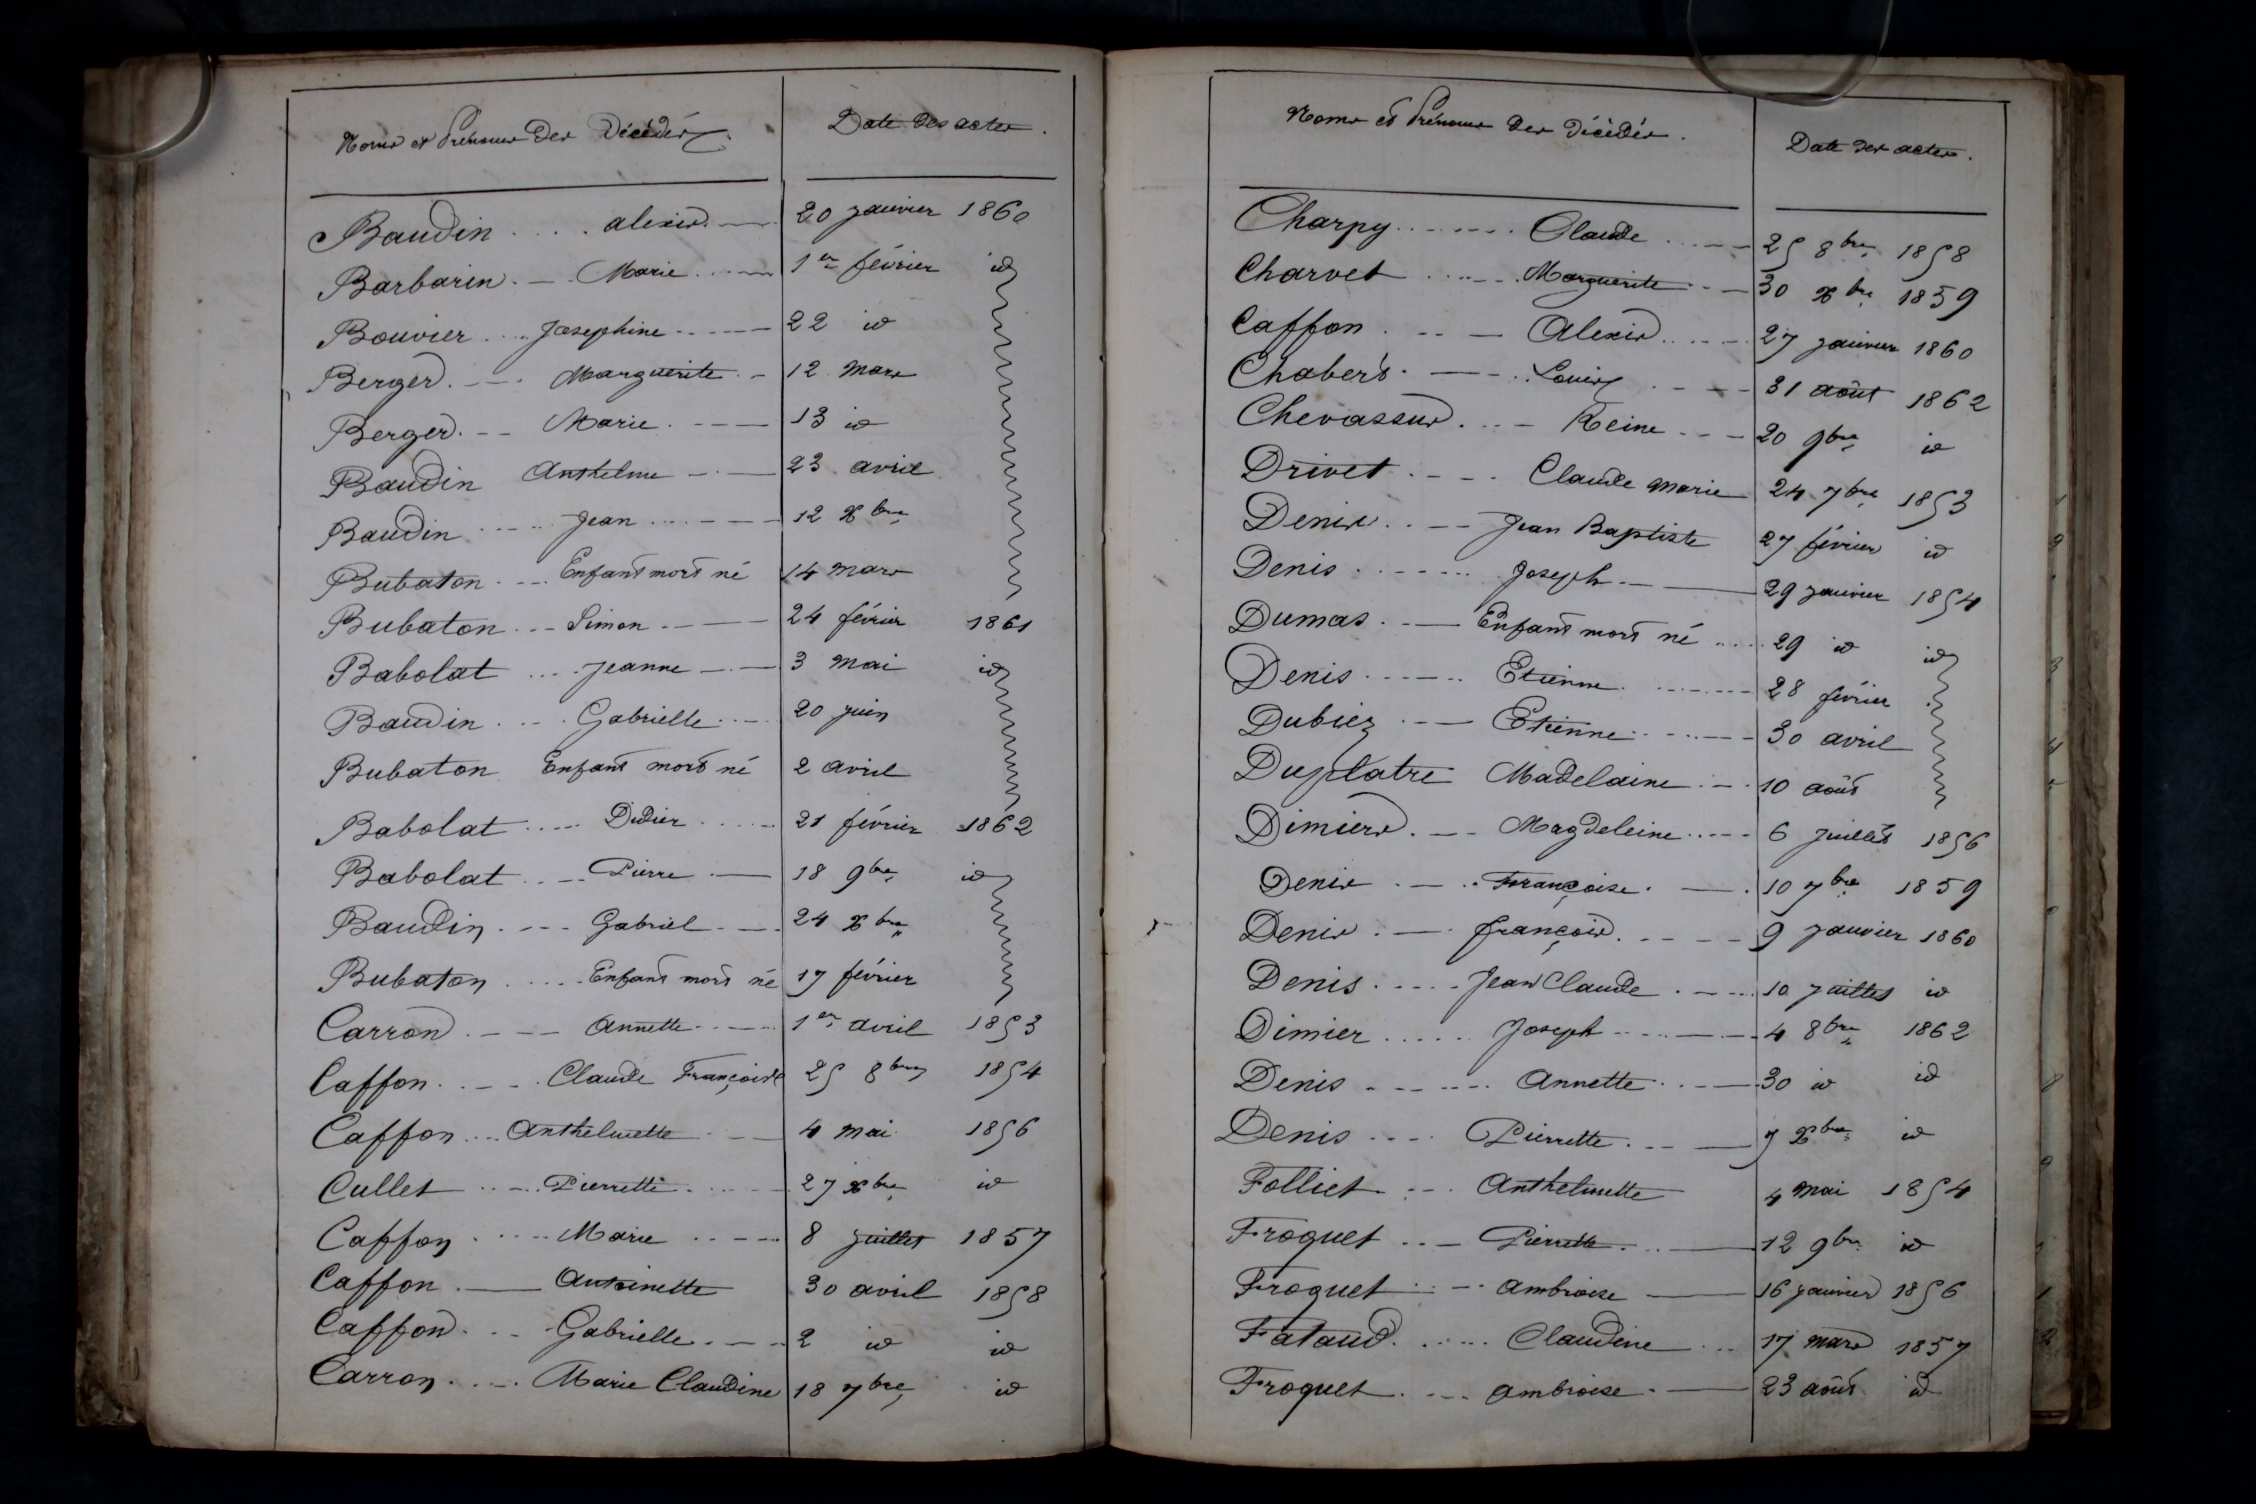 Noms et Prénoms des Décédés. Date des actes.
Baudin .... alexis. — 20 janvier 1860
Barbarin. — . Marie ..... 1er février id
Bouvier .... Josephine ..... — 22 id
Berger. — . Marguerite. — 12 mars
Berger. — Marie. — 13 id
Baudin Anthelme — . — 23 avril
Baudin ..... Jean .... — 12 Xbre
Bubaton. ... Enfant mort né 14 mars
Bubaton ... Simon — 24 février 1861
Babolat .... Jeanne — 3 mai id
Baudin .... Gabrielle .... 20 juin
Bubaton Enfant mort né 2 avril
Babolat ..... Didier ..... 21 février 1862
Babolat .... Pierre — 18 9bre id
Baudin. --- Gabriel. — 24 Xbre
Bubaton ..... Enfant mort né 17 février
Carron. — Annette .... 1er avril 1853
Caffon. ... Claude Françoise 25 8bre 1854
Caffon .... Anthelmette — 4 mai 1856
Cullet ..... Pierrette ..... 27 Xbre id
Caffon ..... Marie ..... 8 juillet 1857
Caffon. — Antoinette 30 avril 1858
Caffon. ... Gabrielle. — 2 id id
Carron. .... Marie Claudine 18 7bre id
Noms et Prénoms des Décédés. Date des actes.
Charpy ....... Claude .... — 25 8bre 1858
Charvet ..... Marguerite — 30 Xbre 1859
Caffon. .. — Alexis ..... 27 janvier 1860
Chabert. — .. Louis .... 31 août 1862
Chevassus. .. — Reine — 20 9bre id
Drivet .... Claude Marie 24 7bre 1853
Denis. .. — Jean Baptiste 27 février id
Denis ....... Joseph — 29 janvier 1854
Dumas. — Enfant mort né .... 29 id id
Denis ...... Etienne. ..... 28 février
Dubiez .. — Etienne ..... 30 avril
Duplatre Madelaine .. — 10 août
Dimier. — Magdeleine .... 6 juillet 1856
Denis . — .. Françoise. — . 10 7bre 1859
Denis . — . françois. .... 9 janvier 1860
Denis ..... Jean Claude . — 10 juillet id
Dimier ...... Joseph — 4 8bre 1862
Denis ....... Annette — 30 id id
Denis .... Pierrette. — 7 Xbre id
Folliet .... Anthelmette 4 mai 1854
Froquet ... — Pierrette. — 12 9bre id
Froquet .. — . ambroise — 16 janvier 1856
Fataud. ..... Claudine ... 17 mars 1857
Froquet. ... ambroise. — 23 août id